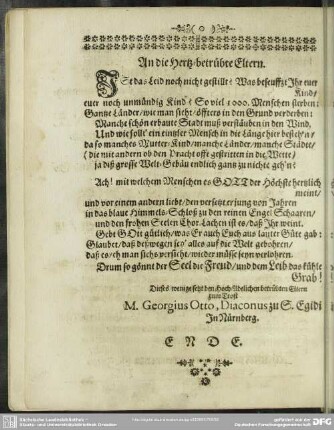 ( o )
An die Hertz-betrübte Eltern.
Ist das Leid noch nicht gestillt? Was beseufftzt Ihr euer
Kind/
euer noch unmündig Kind? So viel 1000. Menschen sterben:
Gantze Länder/wie man sieht/öffters in den Grund verderben:
Manche schön erbaute Stadt muß verstäuben in den Wind.
Und wie sollt' ein eintzler Mensch in die Länge hier besteh'n/
da so manches Mutter-Kind/manche Länder/manche Städte/
( die mit andern ob den Pracht offt gestritten in die Wette/
ja diß grosse Welt-Gebäu endlich gantz zu nichte geh'n?
Ach! mit welchem Menschen es GOTT der Höchste hertzlich
meint/
und vor einem andern liebt/den versetzt er jung von Jahren
in das blaue Himmels-Schloß zu den reinen Engel Schaaren/
und den frohen Seelen Chor. Lachen ist es/daß Ihr weint.
Gebt GOtt gütlich/was Er auch Euch aus lauter Güte gab:
Glaubet/daß deßwegen sey' alles auf die Welt gebohren/
daß es/eh man sichs versicht/wieder müsse seyn verlohren.
Drum so gönnt der Seel die Freud/und dem Leib das kühle
Grab!
Dieses wenige setzt den Hoch-Adelichen betrübten Eltern
zum Trost
M. Georgius Otto, Diaconus zu S. Egidi
In Nürnberg.
E N D E.
Sächsische Landesbibliothek -
Staats- und Universitätsbibliothek Dresden
gefördert von der
Deutschen Forschungsgemeinschaft
DFG